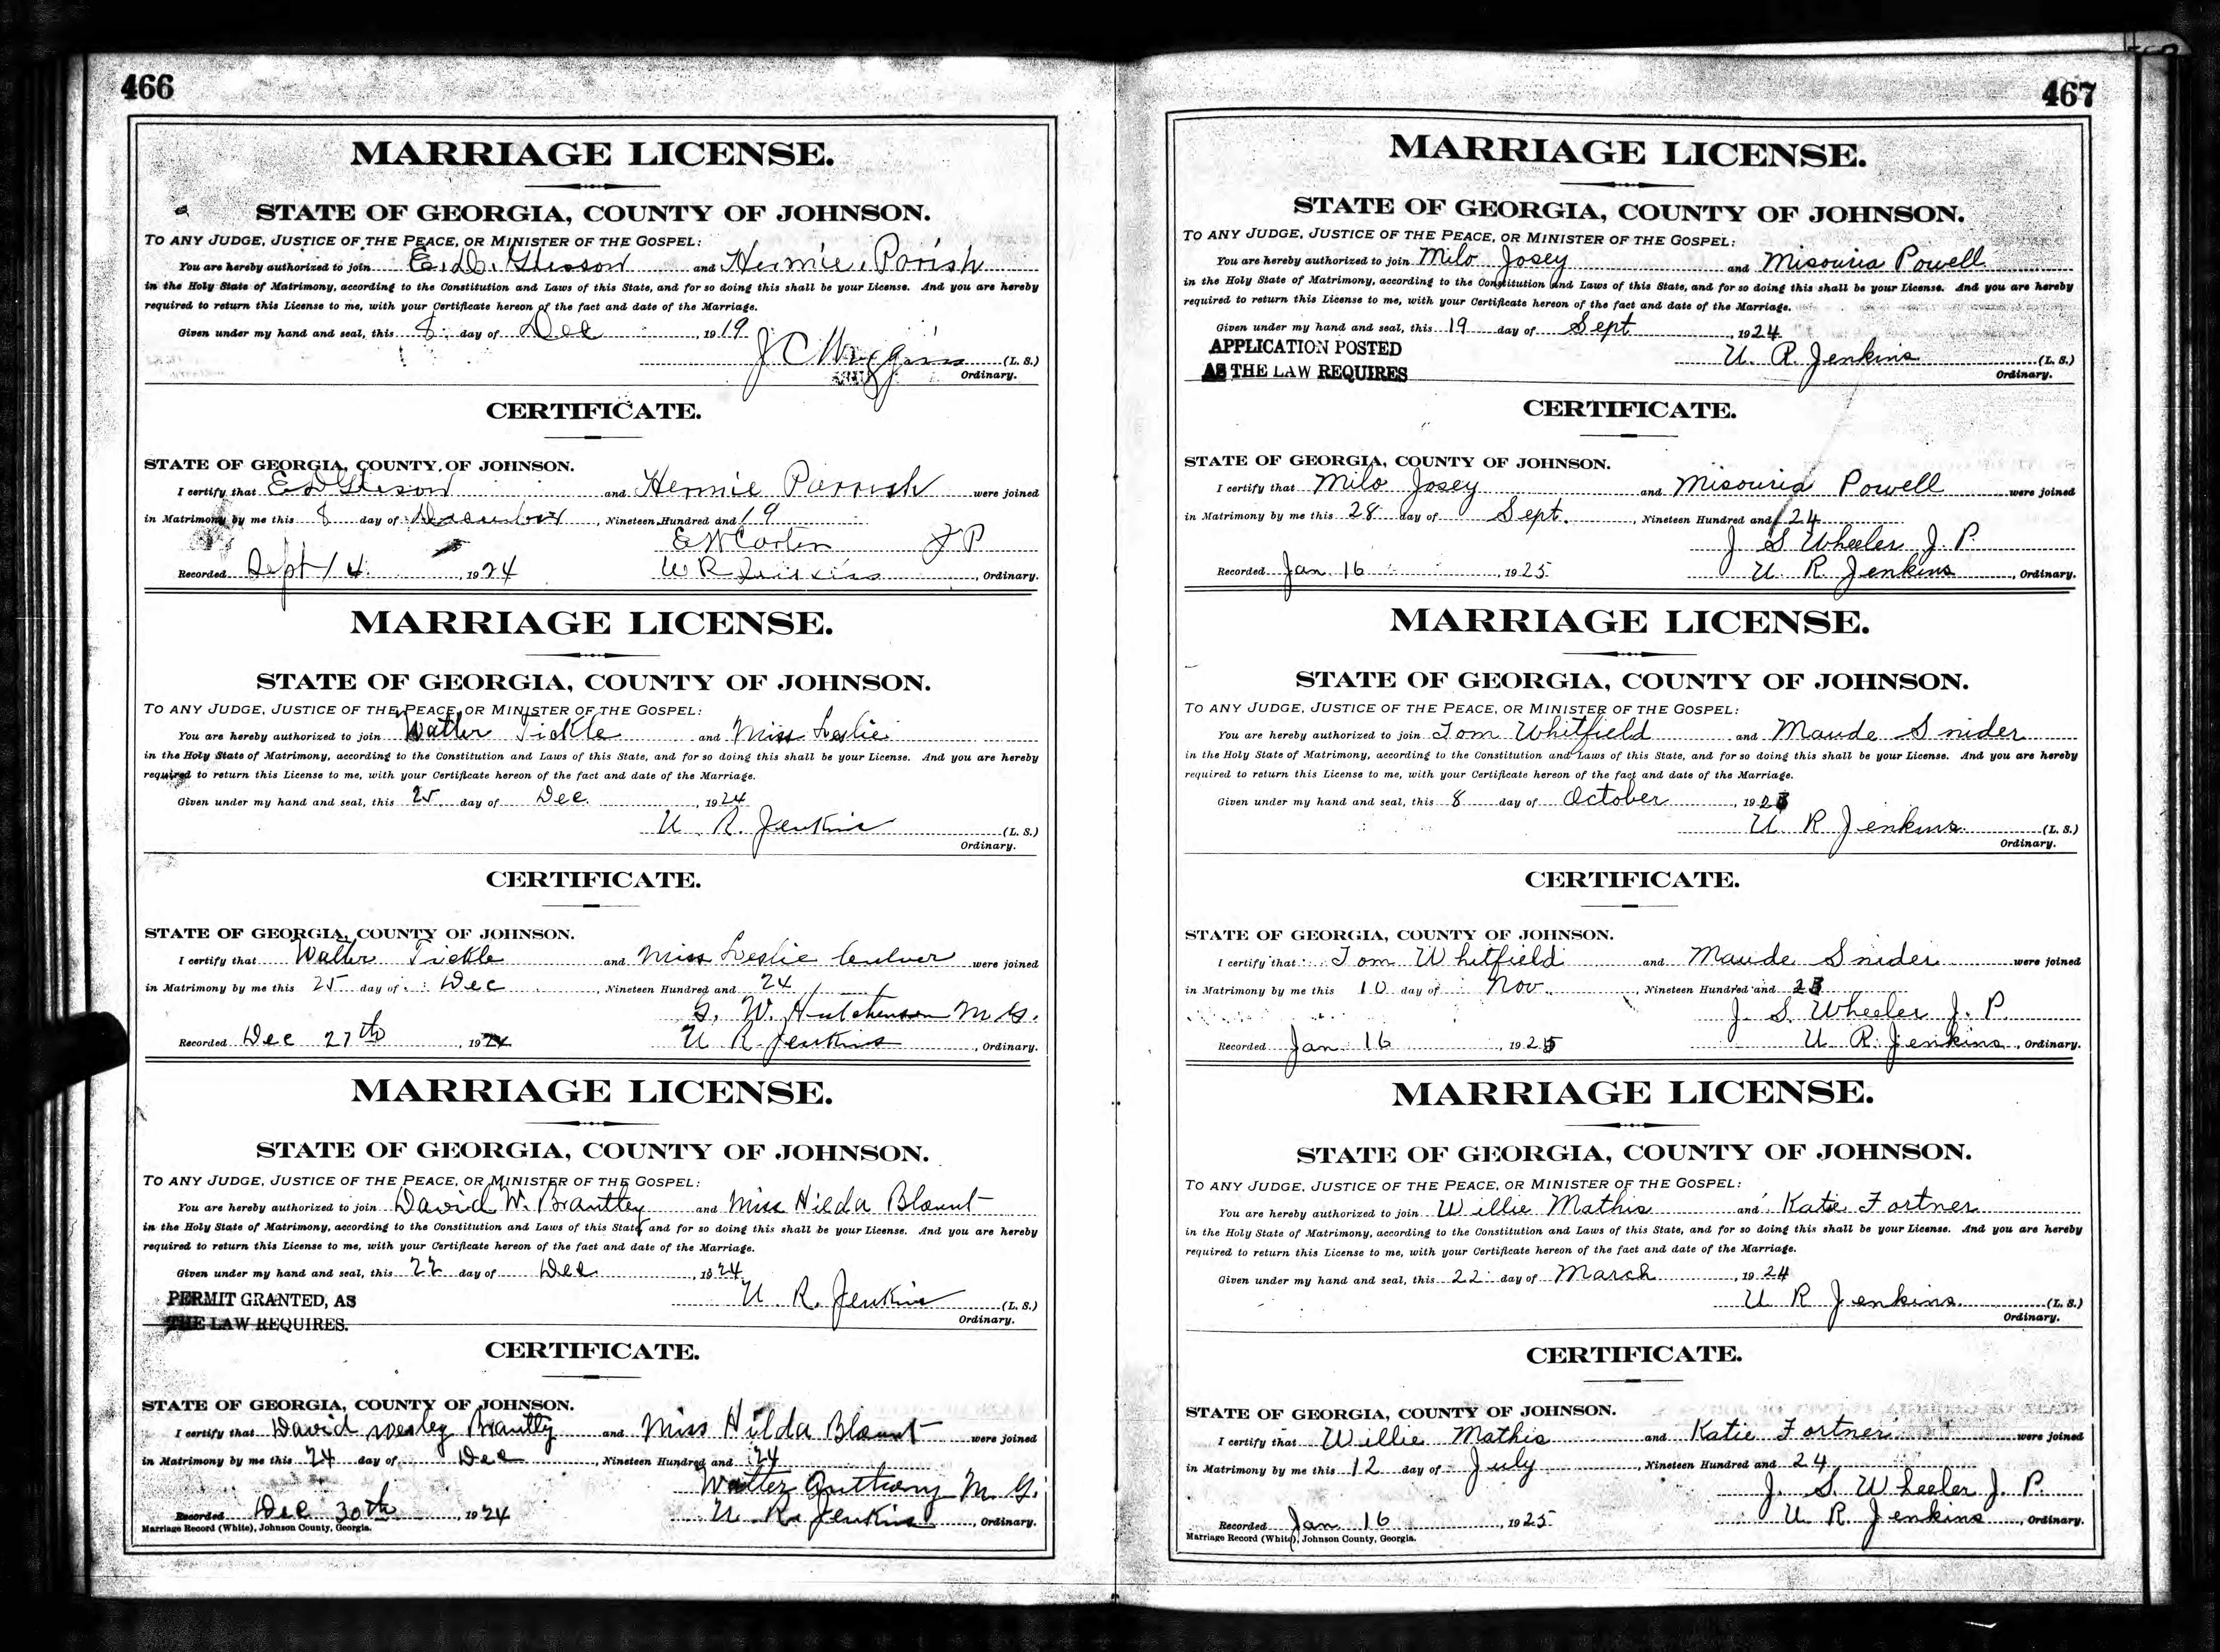 466
MARRIAGE LICENSE.
STATE OF GEORGIA, COUNTY OF JOHNSON.
TO ANY JUDGE, JUSTICE OF THE PEACE, OR MINISTER OF THE GOSPEL:
You are hereby authorized to join E. D. and Hermie Parish
in the Holy State of Matrimony, according to the Constitution and Laws of this State, and for so doing this shall be your License. And you are hereby
required to return this License to me, with your Certificate hereon of the fact and date of the Marriage.
Given under my hand and seal, this 8 day of Dec, 1919
J C Wiggins (L. S.)
Ordinary.
CERTIFICATE.
STATE OF GEORGIA, COUNTY OF JOHNSON.
I certify that E D and Hermie Parrish were joined
in Matrimony by me this 8 day of December, Nineteen Hundred and 19
E W J P
Recorded Sept 1924 Jenkins, Ordinary.
MARRIAGE LICENSE.
STATE OF GEORGIA, COUNTY OF JOHNSON.
TO ANY JUDGE, JUSTICE OF THE PEACE, OR MINISTER OF THE GOSPEL:
You are hereby authorized to join Walter Tickle and Miss Leslie
in the Holy State of Matrimony, according to the Constitution and Laws of this State, and for so doing this shall be your License. And you are hereby
required to return this License to me, with your Certificate hereon of the fact and date of the Marriage.
Given under my hand and seal, this 25 day of Dec. 1924
U. R. Jenkins (L. S.)
Ordinary.
CERTIFICATE.
STATE OF GEORGIA, COUNTY OF JOHNSON.
I certify that Walter Tickle and Miss Leslie were joined
in Matrimony by me this 25 day of Dec, Nineteen Hundred and 24
G. W. Hutchenson M. G.
Recorded Dec 27th, 1924 U R Jenkins, Ordinary.
MARRIAGE LICENSE.
STATE OF GEORGIA, COUNTY OF JOHNSON.
TO ANY JUDGE, JUSTICE OF THE PEACE, OR MINISTER OF THE GOSPEL:
You are hereby authorized to join David W. Brantley and Miss Hilda Blount
in the Holy State of Matrimony, according to the Constitution and Laws of this State, and for so doing this shall be your License. And you are hereby
required to return this License to me, with your Certificate hereon of the fact and date of the Marriage.
Given under my hand and seal, this 22 day of Dec, 1924
PERMIT GRANTED, AS
U. R. Jenkins (L. S.)
THE LAW REQUIRES.
Ordinary.
CERTIFICATE.
STATE OF GEORGIA, COUNTY OF JOHNSON.
I certify that David Wesley Brantly and Miss Hilda Blount were joined
in Matrimony by me this 24 day of Dec, Nineteen Hundred and 24
Walter Anthony M. G.
Recorded Dec 30th, 1924 U. R. Jenkins, Ordinary.
Marriage Record (White), Johnson County, Georgia.
467
MARRIAGE LICENSE.
STATE OF GEORGIA, COUNTY OF JOHNSON.
TO ANY JUDGE, JUSTICE OF THE PEACE, OR MINISTER OF THE GOSPEL:
You are hereby authorized to join Milo Josey and Misouria Powell
in the Holy State of Matrimony, according to the Constitution and Laws of this State, and for so doing this shall be your License. And you are hereby
required to return this License to me, with your Certificate hereon of the fact and date of the Marriage.
Given under my hand and seal, this 19 day of Sept, 1924
APPLICATION POSTED
U. R. Jenkins (L. S.)
AS THE LAW REQUIRES
Ordinary.
CERTIFICATE.
STATE OF GEORGIA, COUNTY OF JOHNSON.
I certify that Milo Josey and Misouria Powell were joined
in Matrimony by me this 28 day of Sept., Nineteen Hundred and 24
J S Wheeler J. P.
Recorded Jan 16, 1925 U. R. Jenkins, Ordinary.
MARRIAGE LICENSE.
STATE OF GEORGIA, COUNTY OF JOHNSON.
TO ANY JUDGE, JUSTICE OF THE PEACE, OR MINISTER OF THE GOSPEL:
You are hereby authorized to join Tom Whitfield and Maude Snider
in the Holy State of Matrimony, according to the Constitution and Laws of this State, and for so doing this shall be your License. And you are hereby
required to return this License to me, with your Certificate hereon of the fact and date of the Marriage.
Given under my hand and seal, this 8 day of October, 1923
U R Jenkins (L. S.)
Ordinary.
CERTIFICATE.
STATE OF GEORGIA, COUNTY OF JOHNSON.
I certify that Tom Whitfield and Maude Snider were joined
in Matrimony by me this 10 day of Nov., Nineteen Hundred and 23
J. S. Wheeler J. P.
Recorded Jan 16, 1925 U R. Jenkins, Ordinary.
MARRIAGE LICENSE.
STATE OF GEORGIA, COUNTY OF JOHNSON.
TO ANY JUDGE, JUSTICE OF THE PEACE, OR MINISTER OF THE GOSPEL:
You are hereby authorized to join Willie Mathis and Katie Fortner
in the Holy State of Matrimony, according to the Constitution and Laws of this State, and for so doing this shall be your License. And you are hereby
required to return this License to me, with your Certificate hereon of the fact and date of the Marriage.
Given under my hand and seal, this 22 day of March, 1924
U R Jenkins (L. S.)
Ordinary.
CERTIFICATE.
STATE OF GEORGIA, COUNTY OF JOHNSON.
I certify that Willie Mathis and Katie Fortner were joined
in Matrimony by me this 12 day of July, Nineteen Hundred and 24
J. S. Wheeler J. P.
Recorded Jan 16, 1925 U. R. Jenkins, Ordinary.
Marriage Record (White), Johnson County, Georgia.